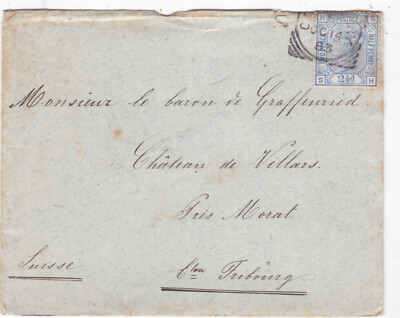 83
2½d
H
Monsieur le baron de Graffenried
Château de Villars.
Près Morat
Suisse
Cton Fribourg